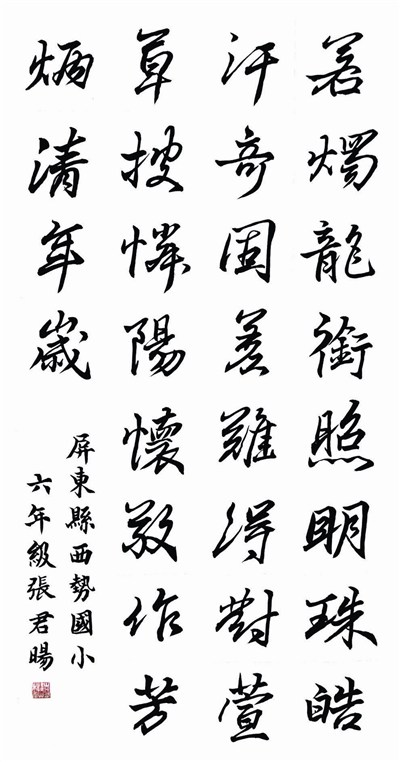 若燭龍銜照明珠皓
汗奇固善難得對萱
草披憐陽懷敬作芳
炳清年歲
屏東縣西勢國小
六年級張君暘